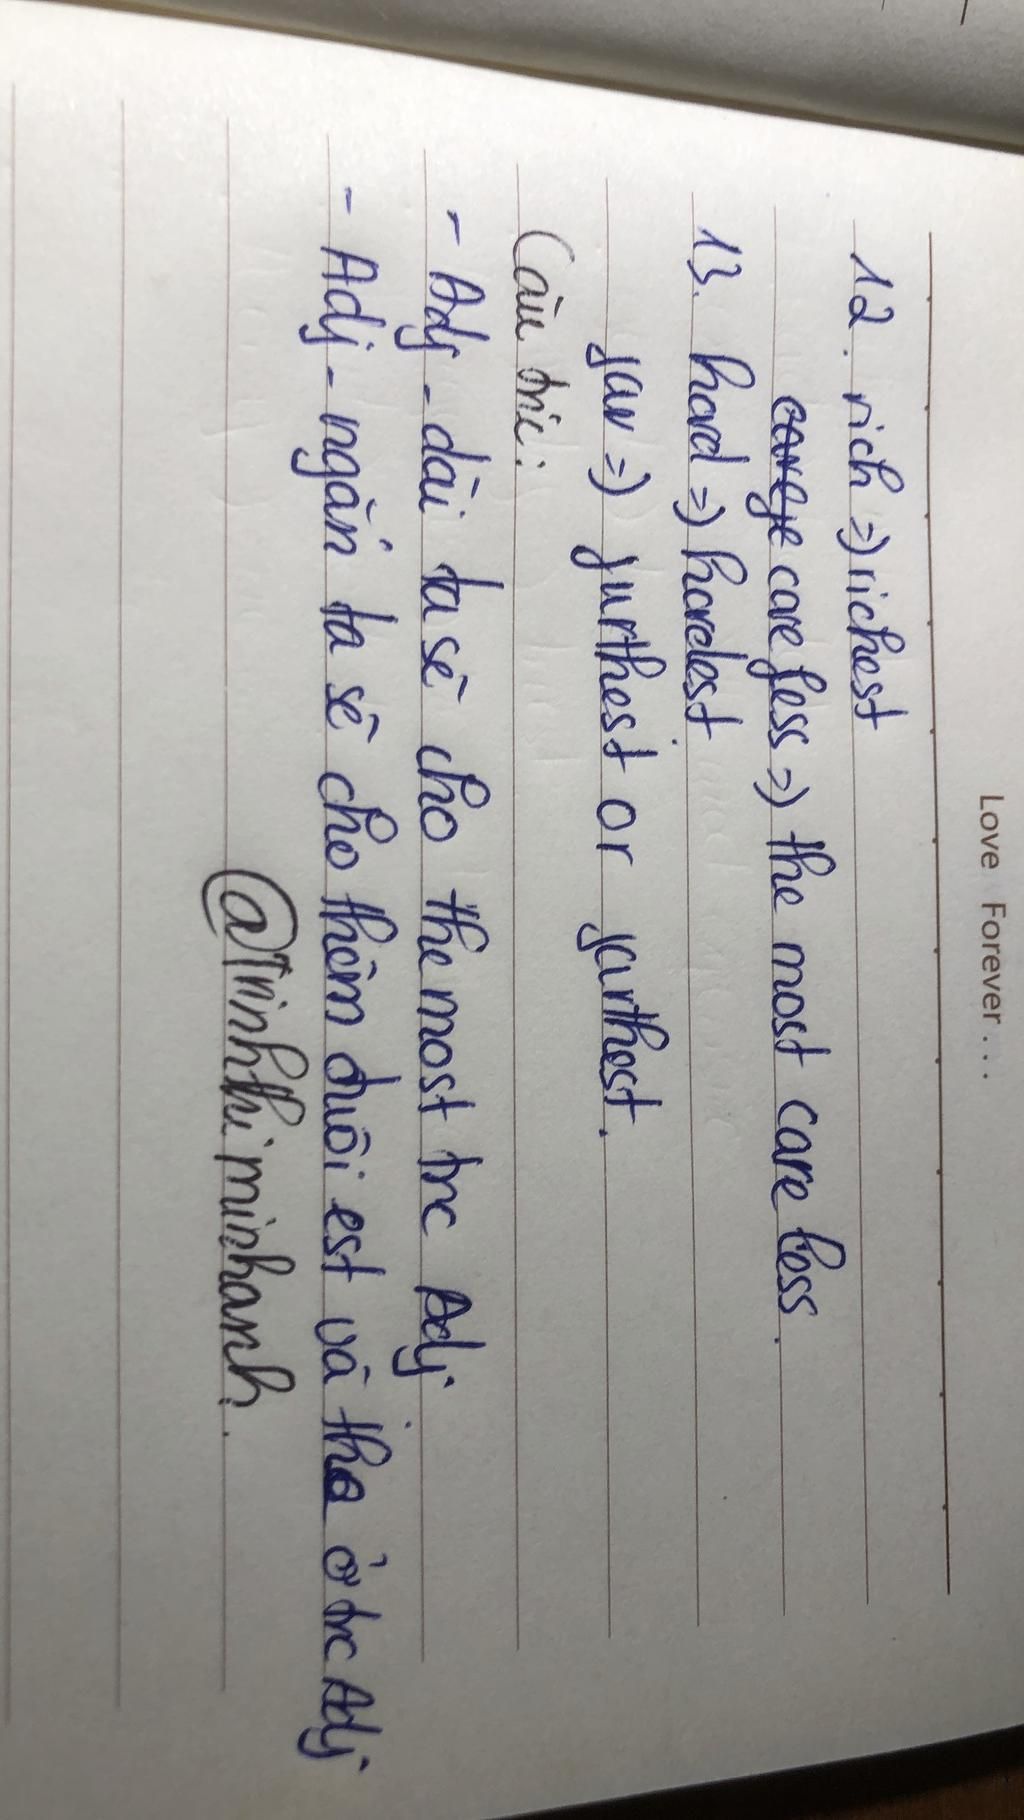 Love Forever...
12. rich => richest
care less => the most care less.
13. hard => hardest
far => furthest or farthest.
Cấu trúc:
- Adj - dài ta sẽ cho the most trc Adj.
- Adj - ngắn ta sẽ cho thêm đuôi est và the ở trc Adj.
@Trinhthiminhanh.